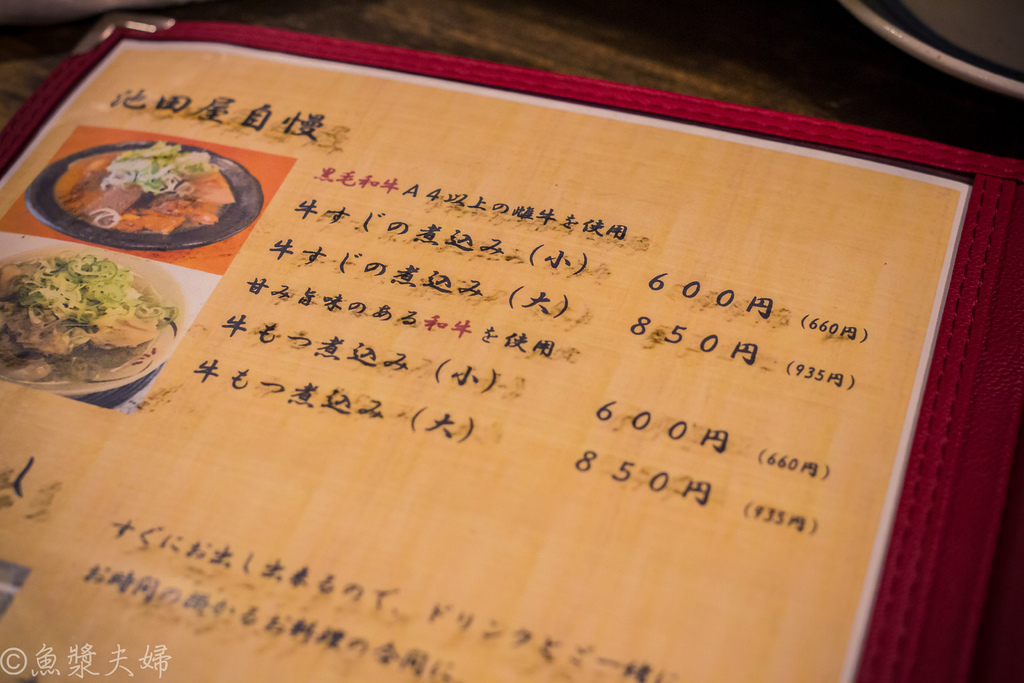 池田屋自慢
黒毛和牛A4以上の雌牛を使用
牛すじの煮込み(小) 600円 (660円)
牛すじの煮込み(大) 850円 (935円)
甘み旨味のある和牛を使用
牛もつ煮込み(小) 600円 (660円)
牛もつ煮込み(大) 850円 (935円)
し
すぐにお出し出来るので、ドリンクとご一緒に
お時間の掛かるお料理の合間に
©魚漿夫婦